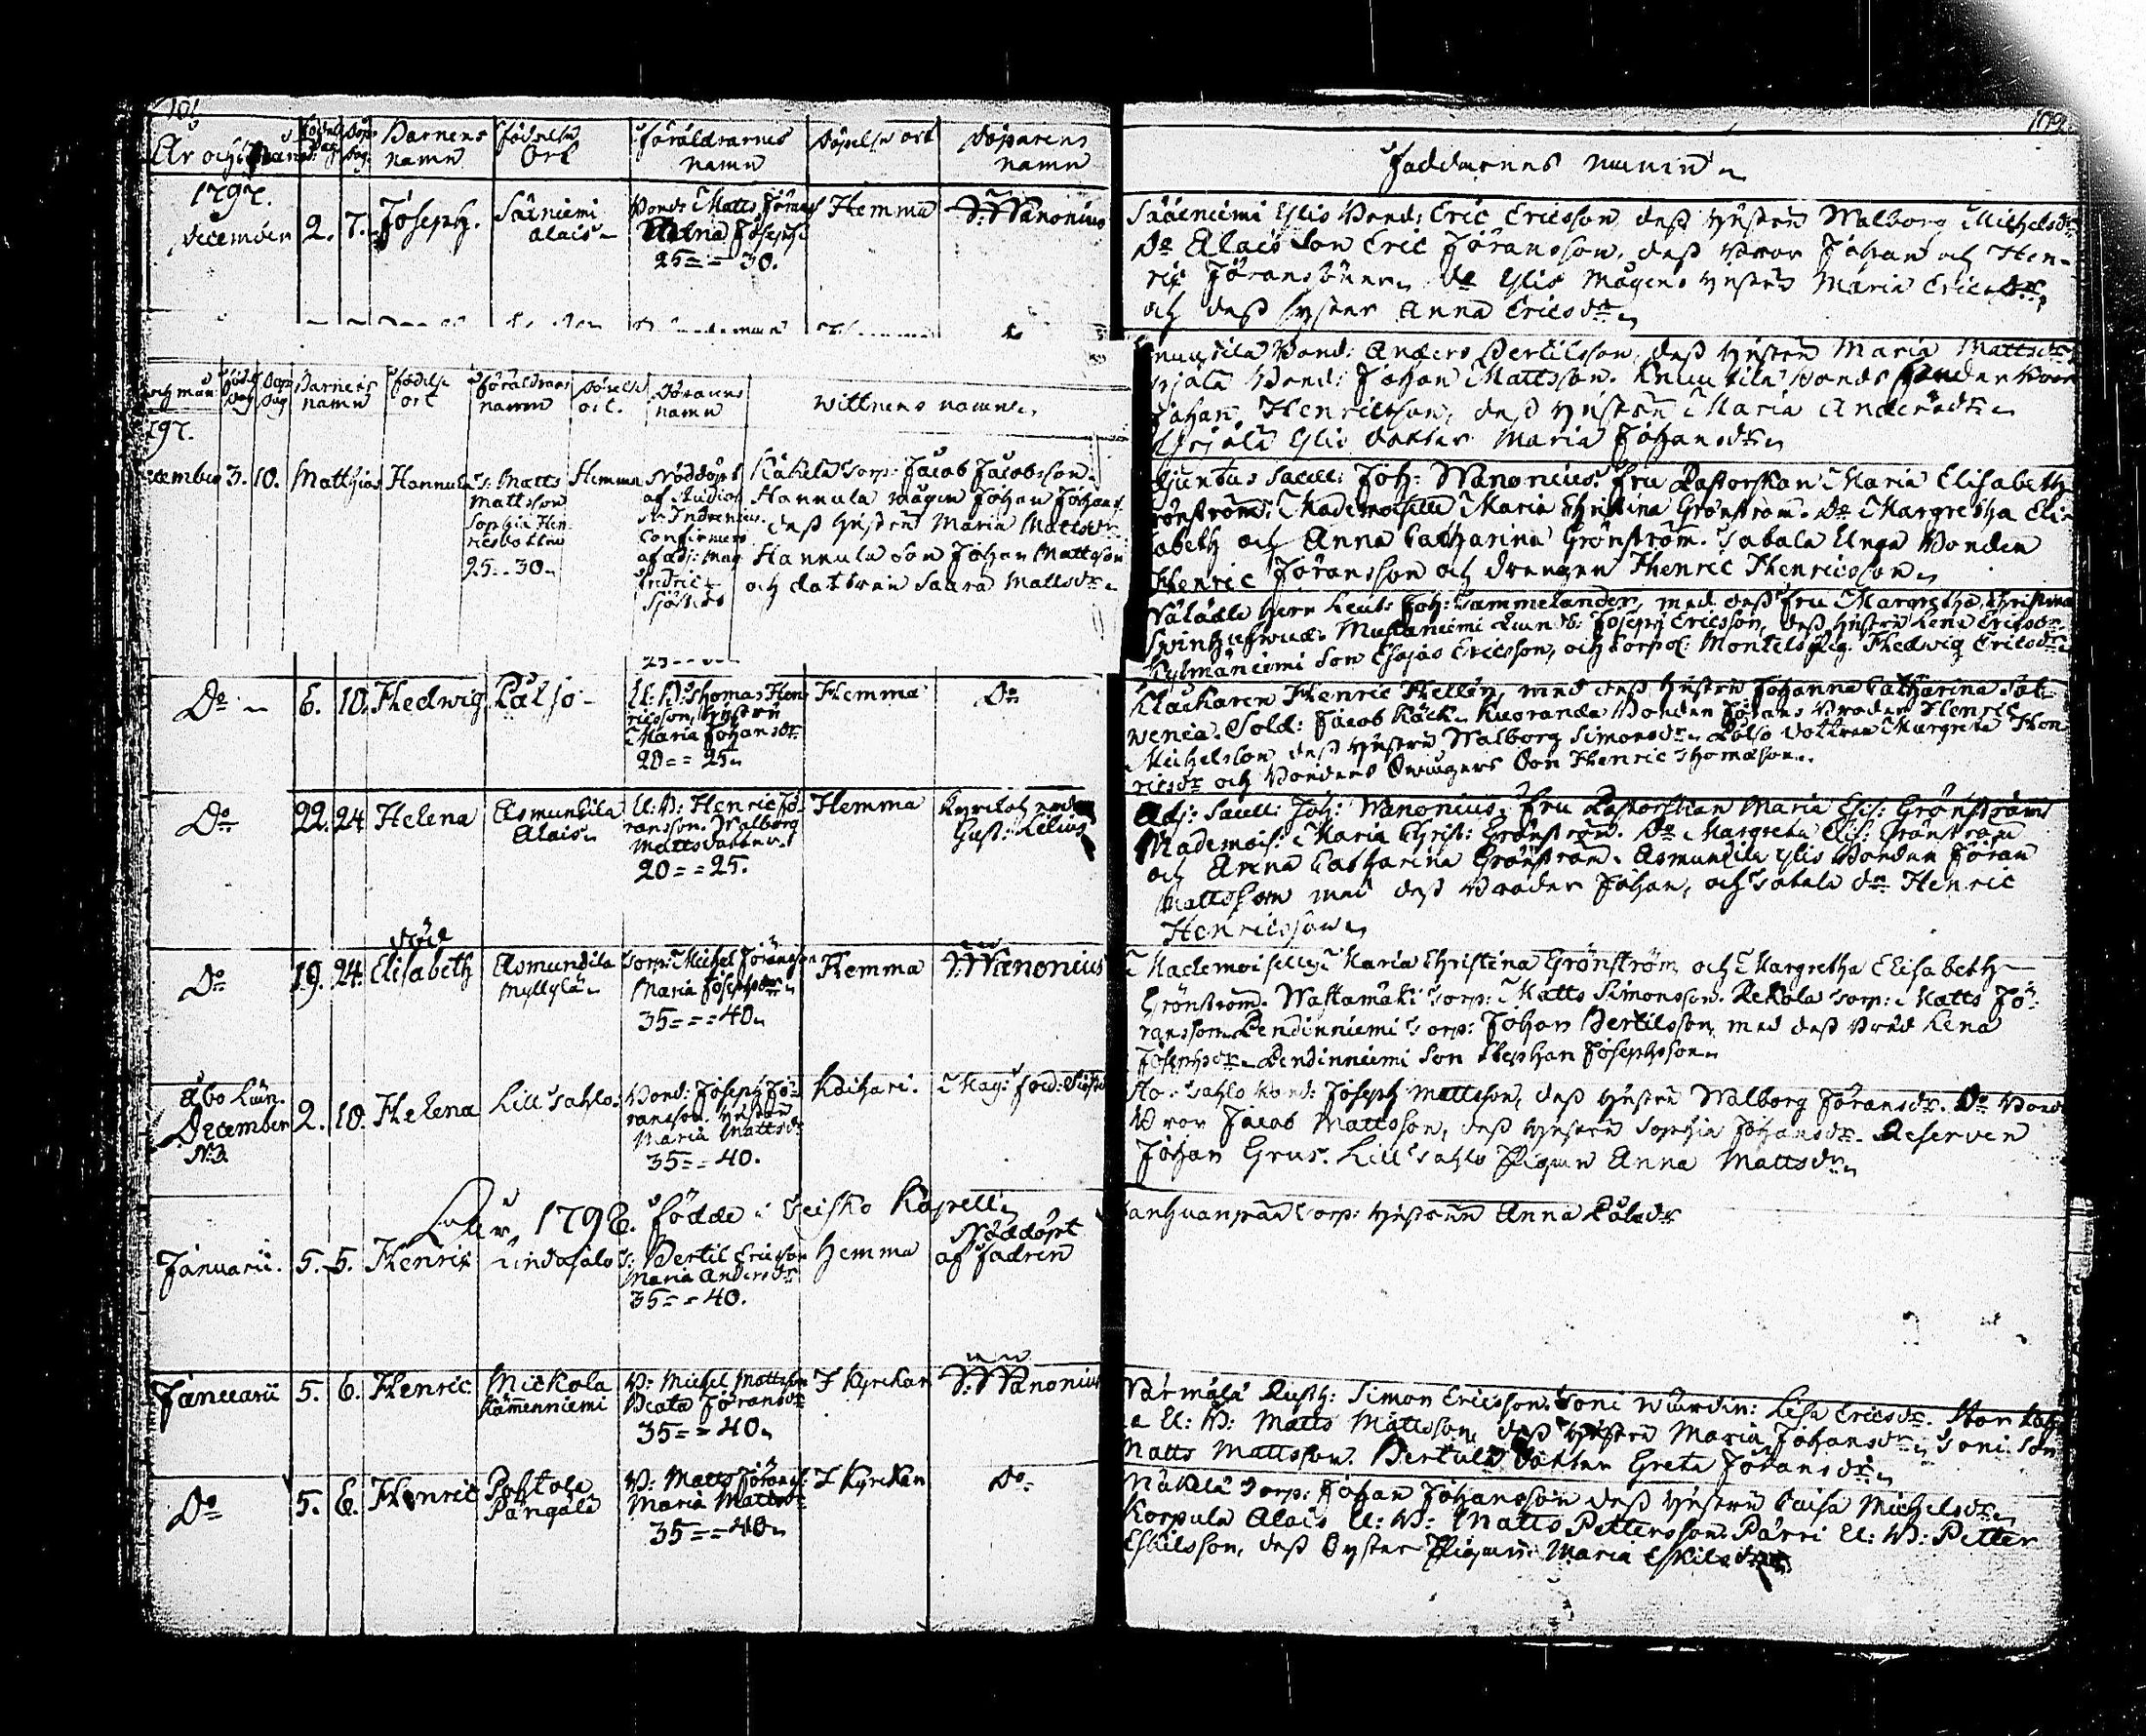 101
År och Månad Födelse Dag Döpe Dag Barnens namn Födelse Ort Föräldrarnes namn Döpelse ort Döparens namn
1797.
December 2. 7. Joseph. Särniemi Alais Bond: Matts Jörans Helena Josephs 25 = = 30. Hemma J: Wanonius
och mån Döpe Dag Barnens namn Födelse ort Föräldrars namn Döpelse ort. Döparens namn Wittnens namn
797.
cember 3. 10. Matthias Hannula T: Matts Mattsson Sophia Hen
ricsdotter
25 = 30
Hemma Nöddöpt
af Studios
confirmera
af adj: Mag
Käkelä torp: Jacob Jacobsson.
Hannula mågen Johan Johans
dess hustru Maria Mattsdr
Hannula Son Johan Mattsson
och dottren Saara Mattsdr
Do 6. 10. Hedwig Pälso U: B: Thomas Hen
ricsson, hustru
Maria Johansdr
20 = = 25
Hemma Do
Do 22. 24 Helena Asmundila
Alais
U: B: Henric Jö
ransson. Walborg
Mattsdotter
20 = = 25.
Hemma Gust: Lilius
död
Do 19. 24. Elisabeth Asmundila
Myllylä
Torp: Michel Jöransson
Maria Josephsdr
35 = = 40
Hemma J: Wanonius
Åbo Län.
December 2. 10. Helena Lill Sahlo Bond: Joseph Jö
ransson. hustru
Maria Mattsdr
35 = = 40.
N:3.
År 1798. födde i Teisko Kapell
Januarii. 5. 5. Henric Lindosalo T: Bertil Ericsson
Maria Andersdr
35 = = 40.
Hemma Nöddöpt
af fadren
Januarii 5. 6. Henric Mickola
Kämenniemi
B: Michel Mattsson
Beata Jöransdr
35 = = 40
I Kyrckan J: Wanonius
Do 5. 6. Henric Pohtola
Pängälä
B: Matts Jörans
Maria Mattsdr
35 = = 40
I Kyrckan Do
102
Faddrarnes namn
Särniemi Yllis Bond: Eric Ericsson, dess hustru Walborg Michelsdr
Do Alais Son Eric Jöransson, dess Bror Johan och Hen
ric Jöranssöner. Do Yllis Mågens hustru Maria Ericsdr,
och dess Syster Anna Ericsdr
Bond: Anders Bertilsson, dess hustru Maria Mattsdr
Bond: Johan Mattsson. Knuutila Bonds
Johan Henricsson, dess hustru Maria Andersdr
Yllis dotter Maria Johansdr
Sacell: Joh: Wanonius. Fru Pastorskan Maria Elisabeth
Grönström. Mademoiselle Maria Christina Grönström. Do Margretha Eli
sabeth och Anna Catharina Grönström. Unga Bonden
Henric Jöransson och drengen Henric Henricsson
Herr Leut: Joh: Tammelander, med dess Fru Margretha Christina
Joseph Ericsson, dess hustru Lena Ericsdr.
Kylmäniemi Son Esaias Ericsson, och Corpol: Hedwig Ericsdr
Klockaren Henric Hellén, med dess hustru Johanna Catharina
Sold: Jacob Käck. Kuoranda Bonden Jörans Broder Henric
Michelsson dess hustru Walborg Simonsdr. Pälso dottren Margreta Hen
ricsdr och Bondens Son Henric Thomasson.
Adj: Sacell: Joh: Wanonius, Fru Pastorskan Maria Elis: Grönström
Mademois: Maria Christ: Grönström. Do Margreta Elis: Grönström
och Anna Catharina Grönström. Asmundila Yllis Bonden Jöran
Mattsson med dess Broder Johan, och Do Henric
Henricsson
Mademoiselle Maria Christina Grönström och Margretha Elisabeth
Grönström. Wattamäki Torp: Matts Simonsson. Rekola Torp: Matts Jö
ransson. Pendinniemi Torp: Johan Bertilsson, med dess Lena
Josephsdr. Pendinniemi Son Stephan Josephsson
Stor Sahlo Bond: Joseph Mattsson, dess hustru Walborg Jöransdr. Do Bond
Bror Jacob Mattsson, dess hustru Sophia Johansdr. Reserven
Johan Grus. Lill Sahlo Pigan Anna Mattsdr
Torp: hustrun Anna Påhlsdr
Rusth: Simon Ericsson. Lisa Ericsdr.
U: B: Matts Mattsson, dess hustru Maria Johansdr
Matts Mattsson. Bertula dotter Greta Jöransdr
Mäkelä Torp: Johan Johansson dess hustru Caisa Michelsdr
Korpula Alais U: B: Matts Pettersson. Pärri U: B: Petter
Eskilsson, dess Syster Pigan Maria Eskilsdr